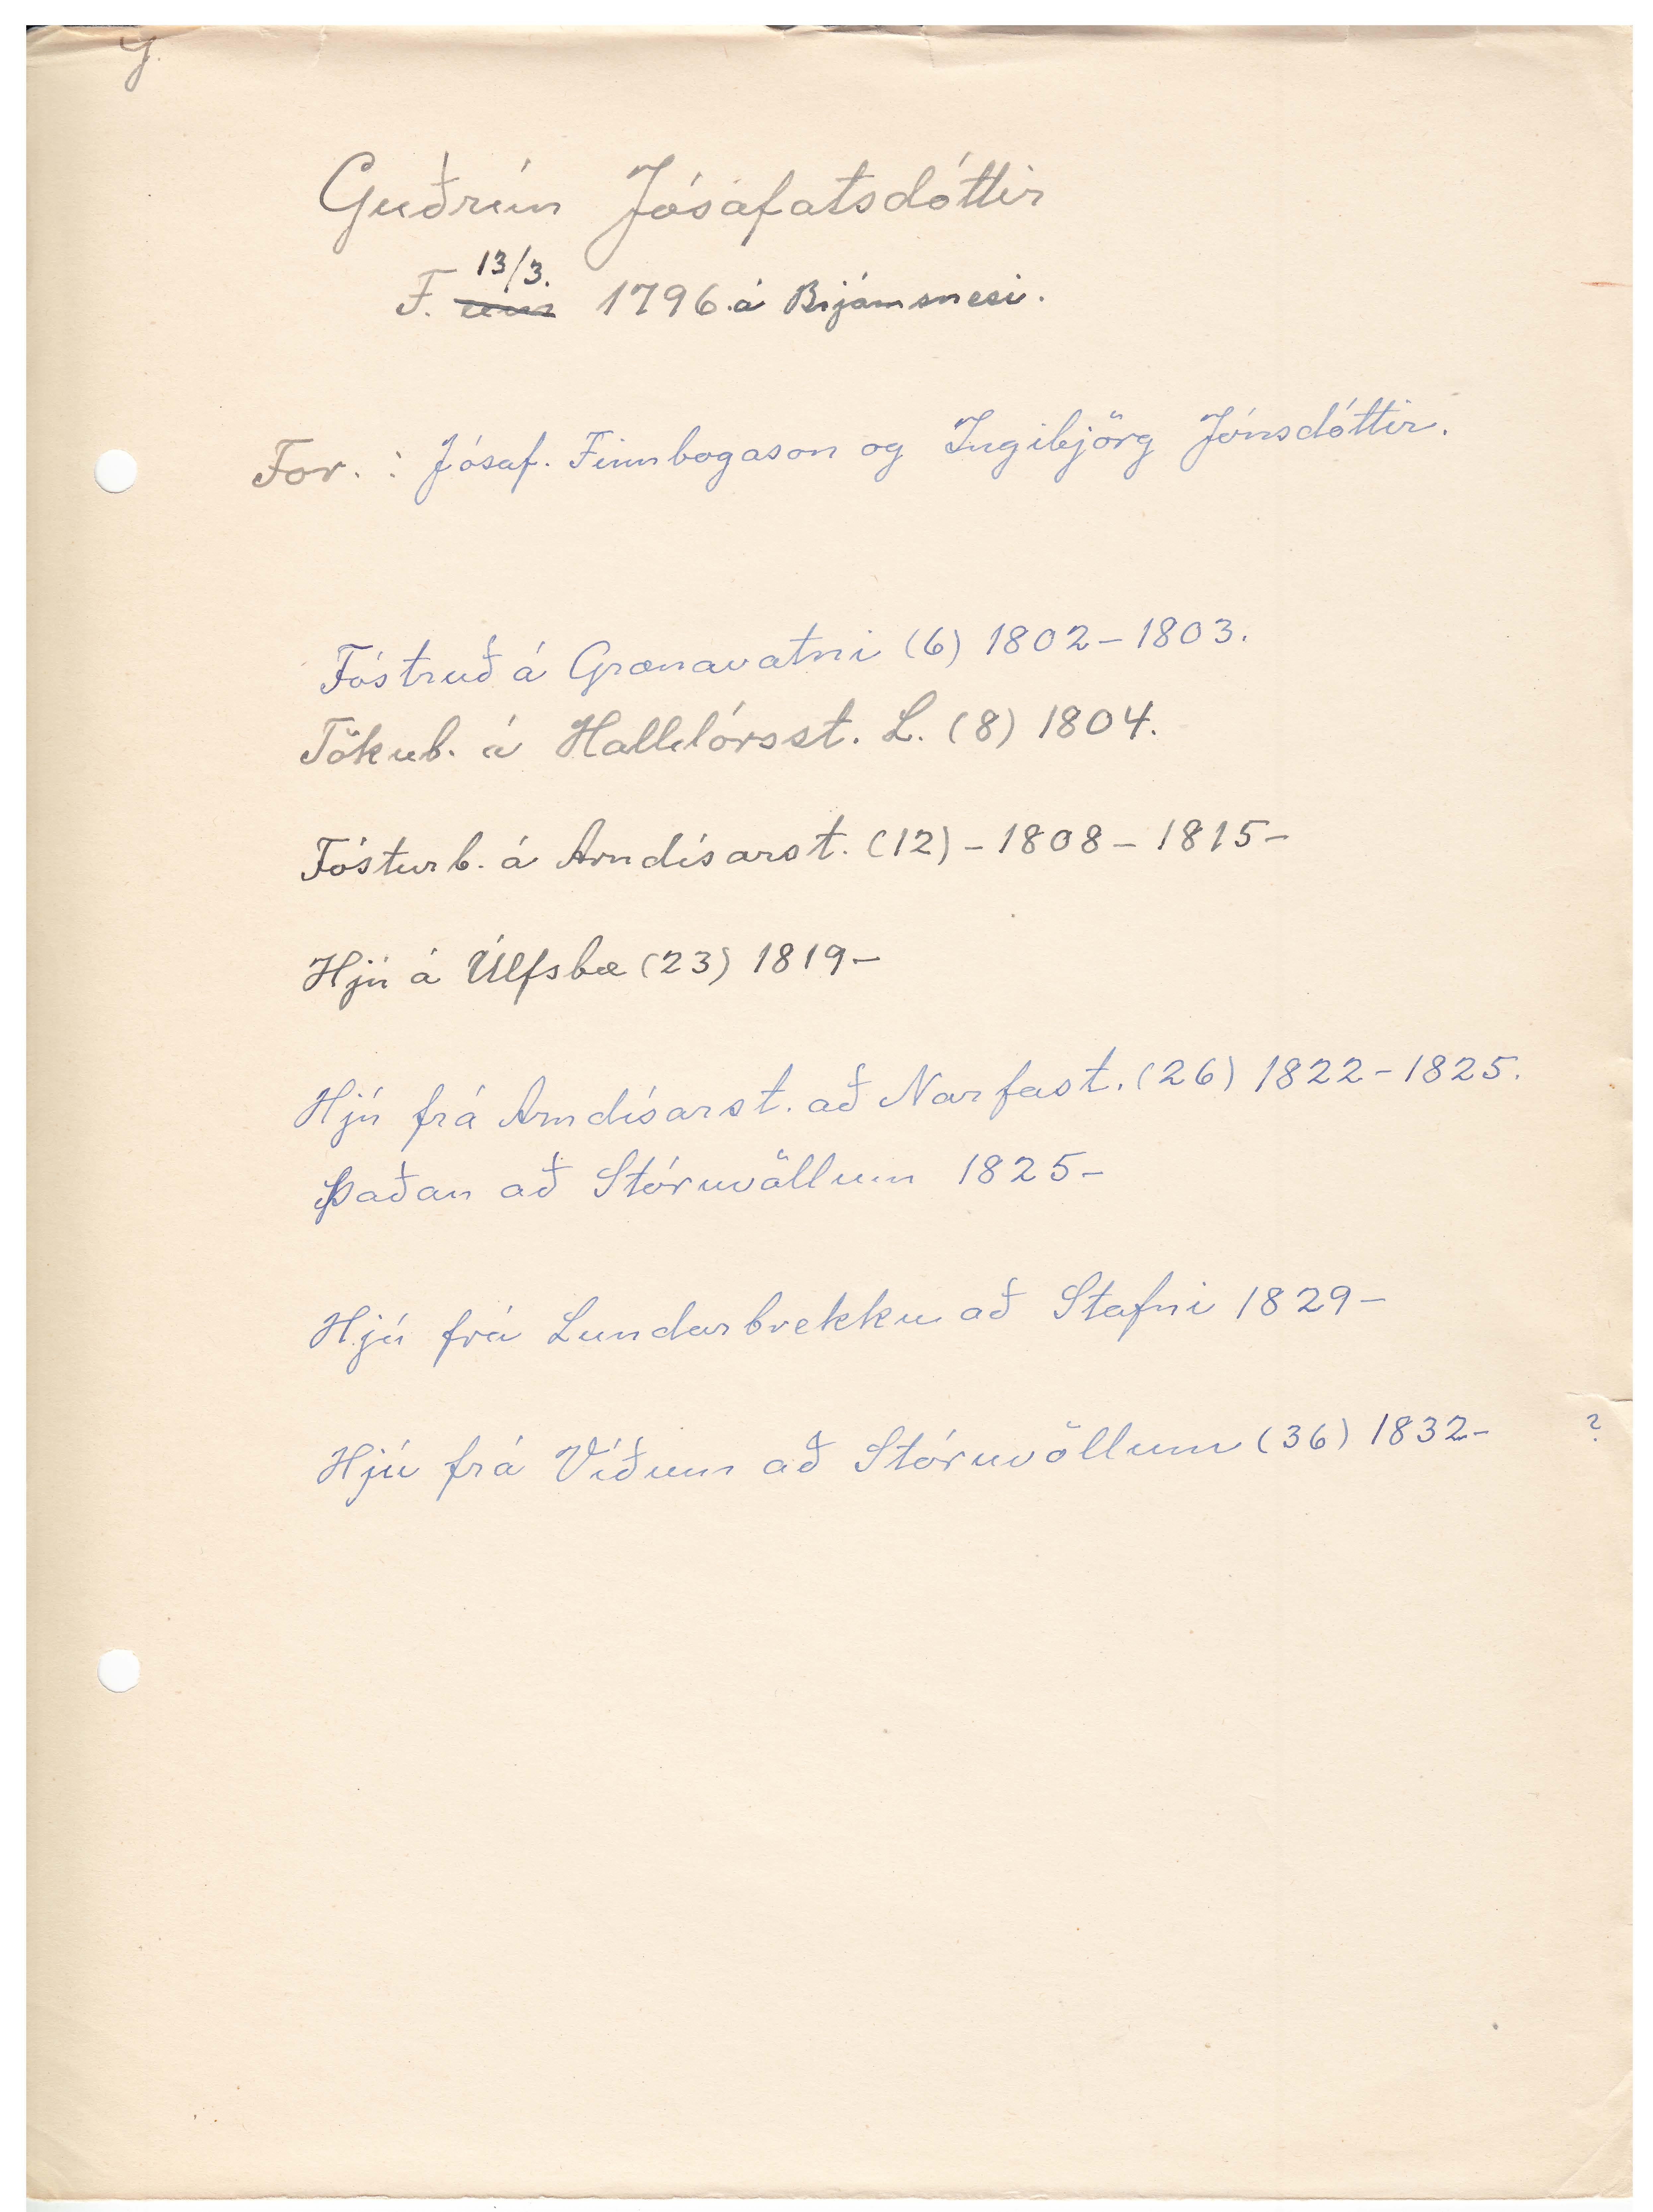 Guðrún Jósafatsdóttir
13/3.
F. um 1796 á Brjámsnesi.
For. : Jósaf. Finnbogason og Ingibjörg Jónsdóttir.
Fóstruð á Grænavatni (6) 1802-1803.
Tökub. á Halldórsst. L. (8) 1804.
Fósturb. á Arndísarst. (12) - 1808 - 1815-
Hjú á Úlfsbæ (23) 1819-
Hjú frá Arndísarst. að Narfast. (26) 1822-1825.
Þaðan að Stóruvöllum 1825-
Hjú frá Lundarbrekku að Stafni 1829-
Hjú frá Víðum að Stóruvöllum (36) 1832- ?